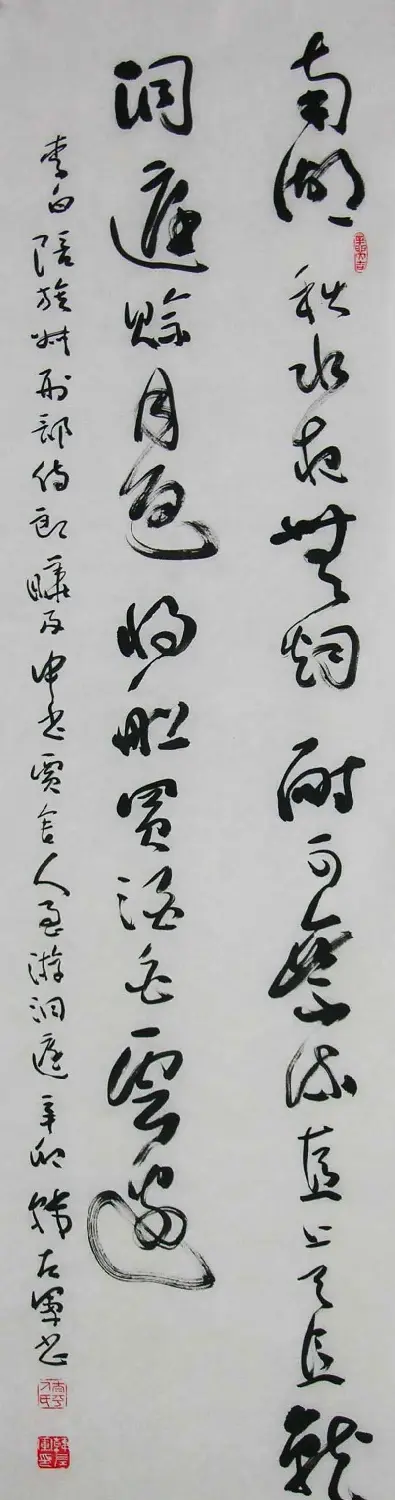 南湖秋水夜無烟耐可乘流直上天且就
洞庭賒月色將船買酒白雲邊
李白陪族叔刑部侍郎曄及中書賈舍人至游洞庭辛卯韓左軍書